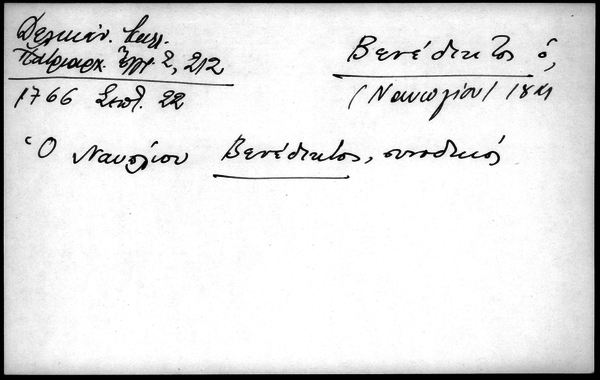 Δελικάν. Καλλ.
Πατριαρχ. Ἔγγρ. 2, 212
1766 Σεπτ. 22
Βενέδικτος ὁ,
(Ναυπλίου) 18
Ὁ Ναυπλίου Βενέδικτος, συνοδικός